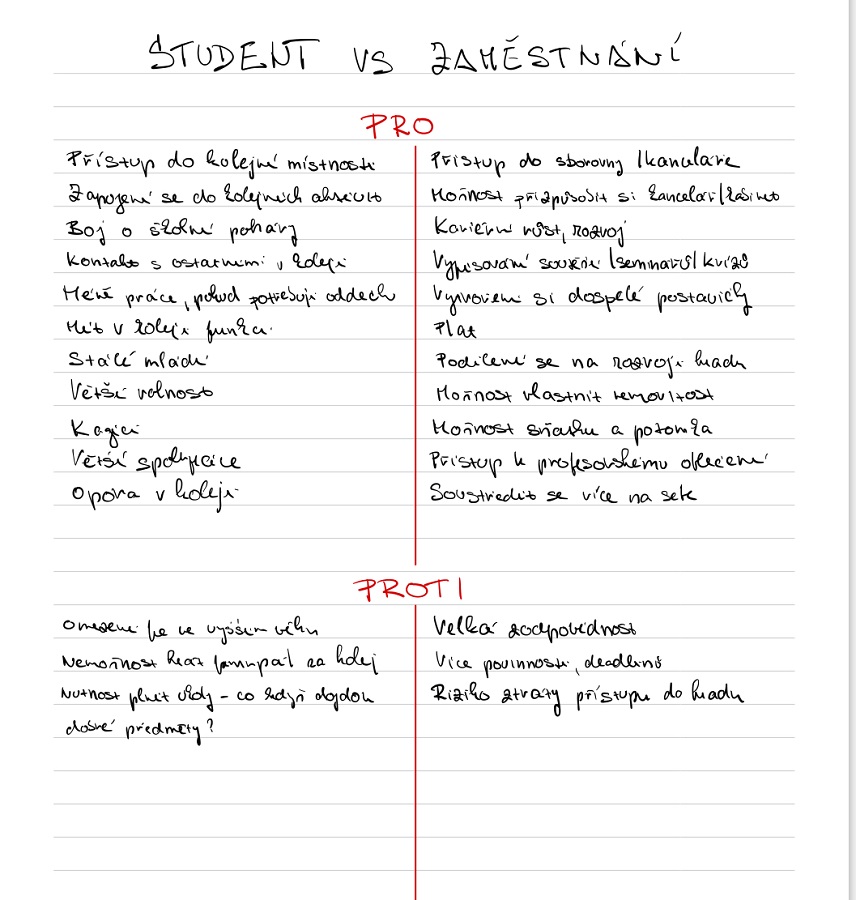 STUDENT VS ZAMĚSTNÁNÍ
PRO
Přístup do kolejní místnosti
Zapojení se do kolejních aktivit
Boj o školní poháry
Kontakt s ostatními v koleji
Méně práce, pokud potřebuji oddech
Mít v koleji funkci
Stálé mládí
Větší volnost
Kagici
Větší spolupráce
Opora v koleji
Přístup do sborovny / kanceláře
Možnost přizpůsobit si kancelář/kabinet
Kariérní růst, rozvoj
Vypisování soutěží / seminářů / kvízů
Vytvoření si dospělé postavičky
Plat
Podílení se na rozvoji hradu
Možnost vlastnit nemovitost
Možnost sňatku a potomka
Přístup k profesorskému oblečení
Soustředit se více na sebe
PROTI
Omezení ve vyšším věku
Nemožnost hrát famfrpál za kolej
Nutnost plnit úkoly - co když dojdou
dobré předměty?
Velká zodpovědnost
Více povinností, deadlinů
Riziko ztráty přístupu do hradu